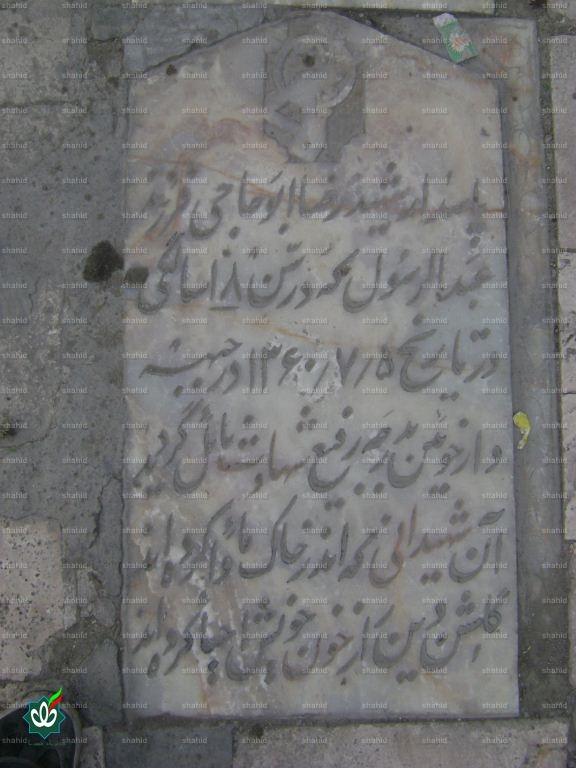 پاسدار شهید رضا ابوحاجی فرزند
عبدالرسول که در سن ۱۸ سالگی
در تاریخ ۱۳۶۰/۷/۵ در جبهه
دارخوئین بدرجه رفیع شهادت نائل گردید
آن شهیدانی که اندر خاک مأوا کرده اند
گلشن دین را ز خون خویش احیا کرده اند
shahid